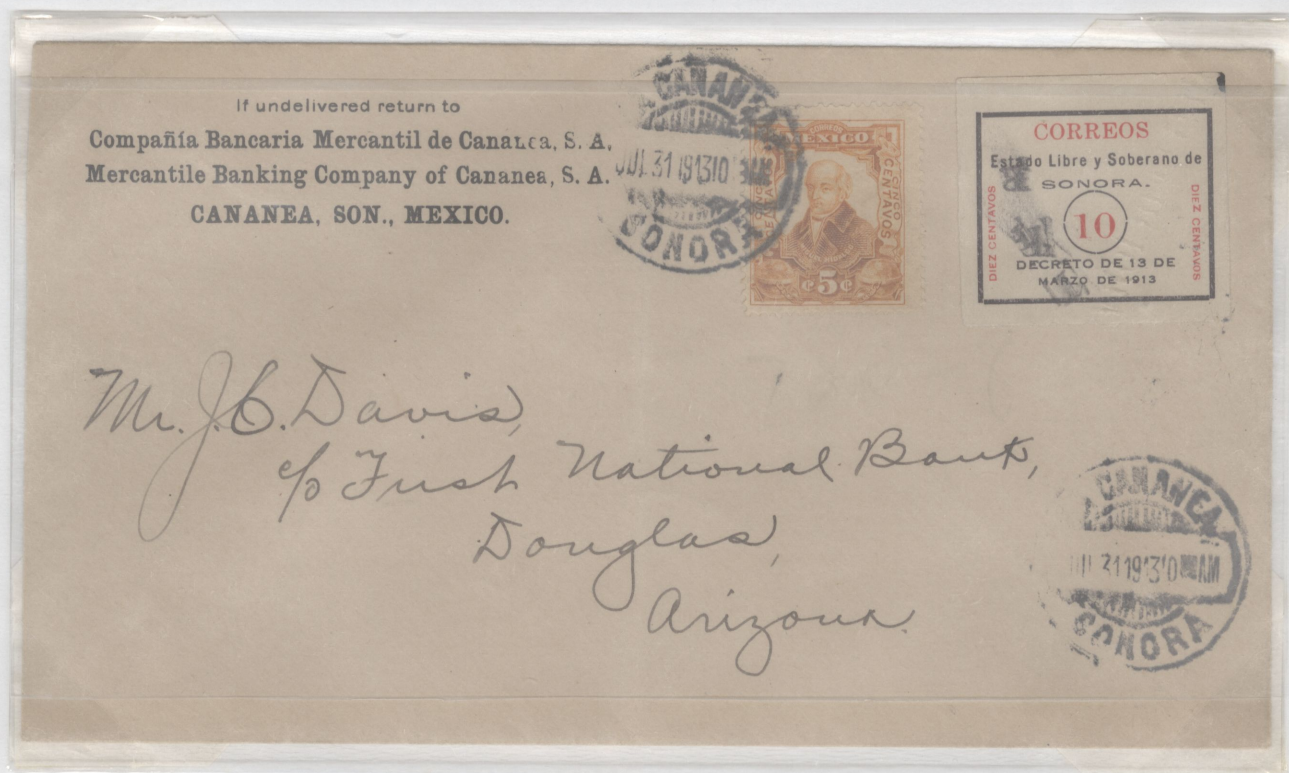 If undelivered return to
Compañía Bancaria Mercantil de Cananea, S. A.
Mercantile Banking Company of Cananea, S. A.
CANANEA, SON., MEXICO.
CANANEA
JUL 31 1913 10
SONORA
MEXICO
CINCO CENTAVOS
5
CORREOS
Estado Libre y Soberano de
SONORA.
DIEZ CENTAVOS
10
DIEZ CENTAVOS
DECRETO DE 13 DE
MARZO DE 1913
Mr. J. C. Davis,
c/o First National Bank,
Douglas,
Arizona.
CANANEA
JUL 31 1913 10 AM
SONORA